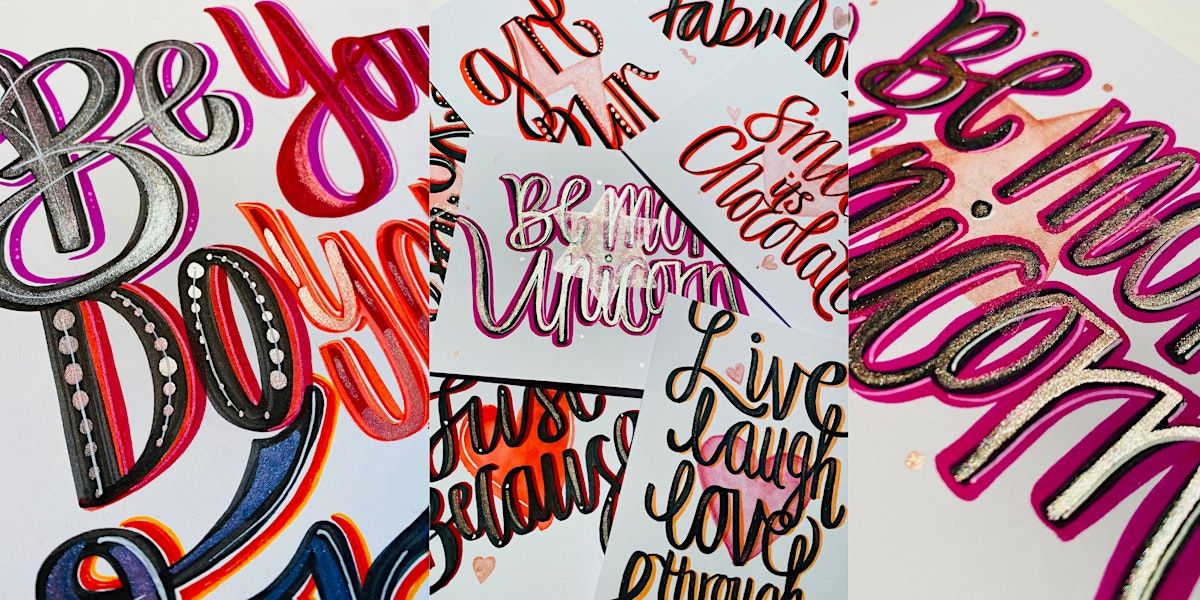 Be You
Do yo
Smi
its
Chocolat
Be mo
Unicorn
Just
Becaus
Live
laugh
love
through
Be mor
nicorn